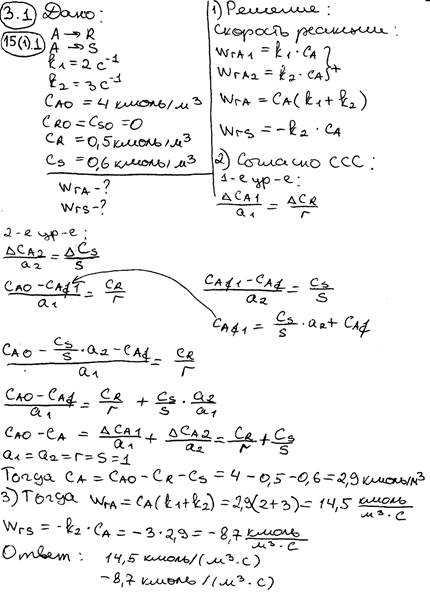 3.1 Дано:
15(1).1
A → R
A → S
k1 = 2 c⁻¹
k2 = 3 c⁻¹
CAO = 4 кмоль/м³
CRO = CSO = 0
CR = 0,5 кмоль/м³
CS = 0,6 кмоль/м³
WrA - ?
WrS - ?
1) Решение:
Скорость реакции:
WrA1 = k1 · CA
WrA2 = k2 · CA } +
WrA = CA(k1+k2)
WrS = -k2 · CA
2) Согласно ССС:
1-е ур-е:
ΔCA1/a1 = ΔCR/r
2-е ур-е:
ΔCA2/a2 = ΔCS/s
(CAO - CAф1)/a1 = CR/r
(CAф1 - CAф)/a2 = CS/s
CAф1 = CS/s · a2 + CAф
(CAO - CS/s · a2 - CAф)/a1 = CR/r
(CAO - CAф)/a1 = CR/r + CS/s · a2/a1
CAO - CA = ΔCA1/a1 + ΔCA2/a2 = CR/r + CS/s
a1 = a2 = r = s = 1
Тогда CA = CAO - CR - CS = 4 - 0,5 - 0,6 = 2,9 кмоль/м³
3) Тогда WrA = CA(k1+k2) = 2,9(2+3) = 14,5 кмоль/м³·с
WrS = -k2 · CA = -3 · 2,9 = -8,7 кмоль/м³·с
Ответ: 14,5 кмоль/(м³·с)
-8,7 кмоль/(м³·с)